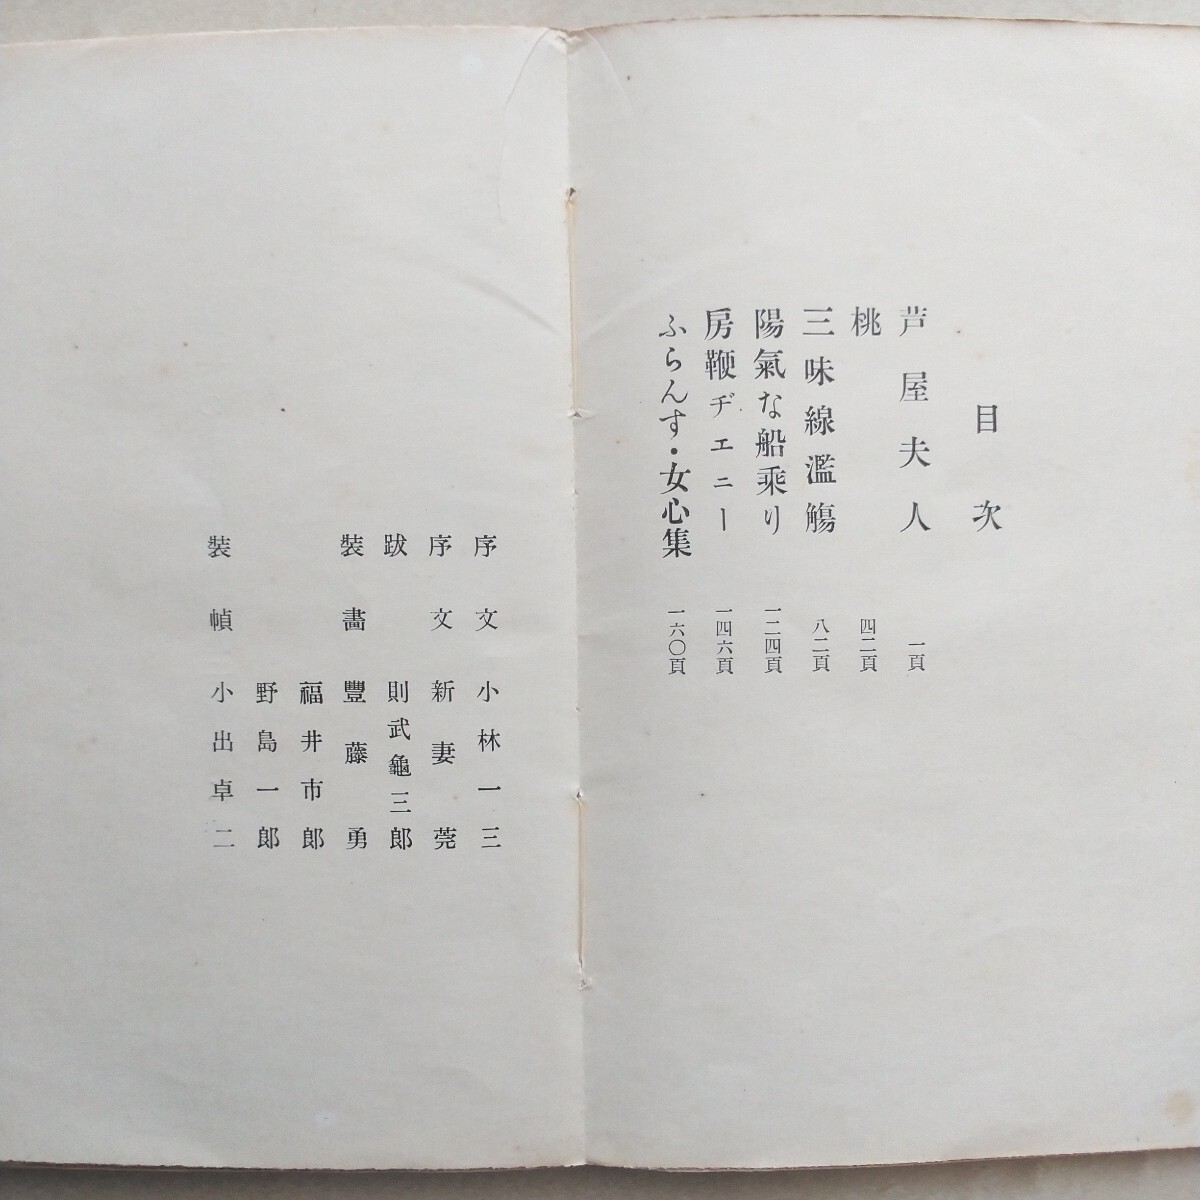 目次
芦屋夫人 一頁
桃 四二頁
三味線濫觴 八二頁
陽氣な船乘り 一二四頁
房鞭ヂェニー 一四六頁
ふらんす・女心集 一六〇頁
序文 小林一三
序文 新妻莞
跋 則武龜三郎
裝畵 豐藤勇
福井市郎
野島一郎
裝幀 小出卓二